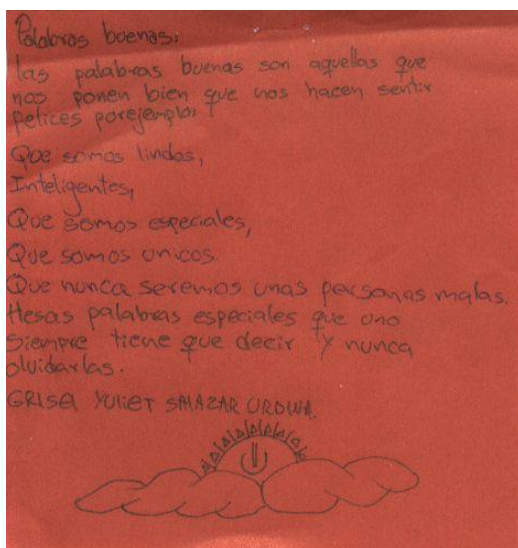 Palabras buenas:
las palabras buenas son aquellas que
nos ponen bien que nos hacen sentir
felices porejemplo:
Que somos lindos,
Inteligentes,
Que somos especiales,
Que somos unicos.
Que nunca seremos unas personas malas.
Hesas palabras especiales que uno
siempre tiene que decir y nunca
olvidarlas.
GRISEl YULIET SALAZAR